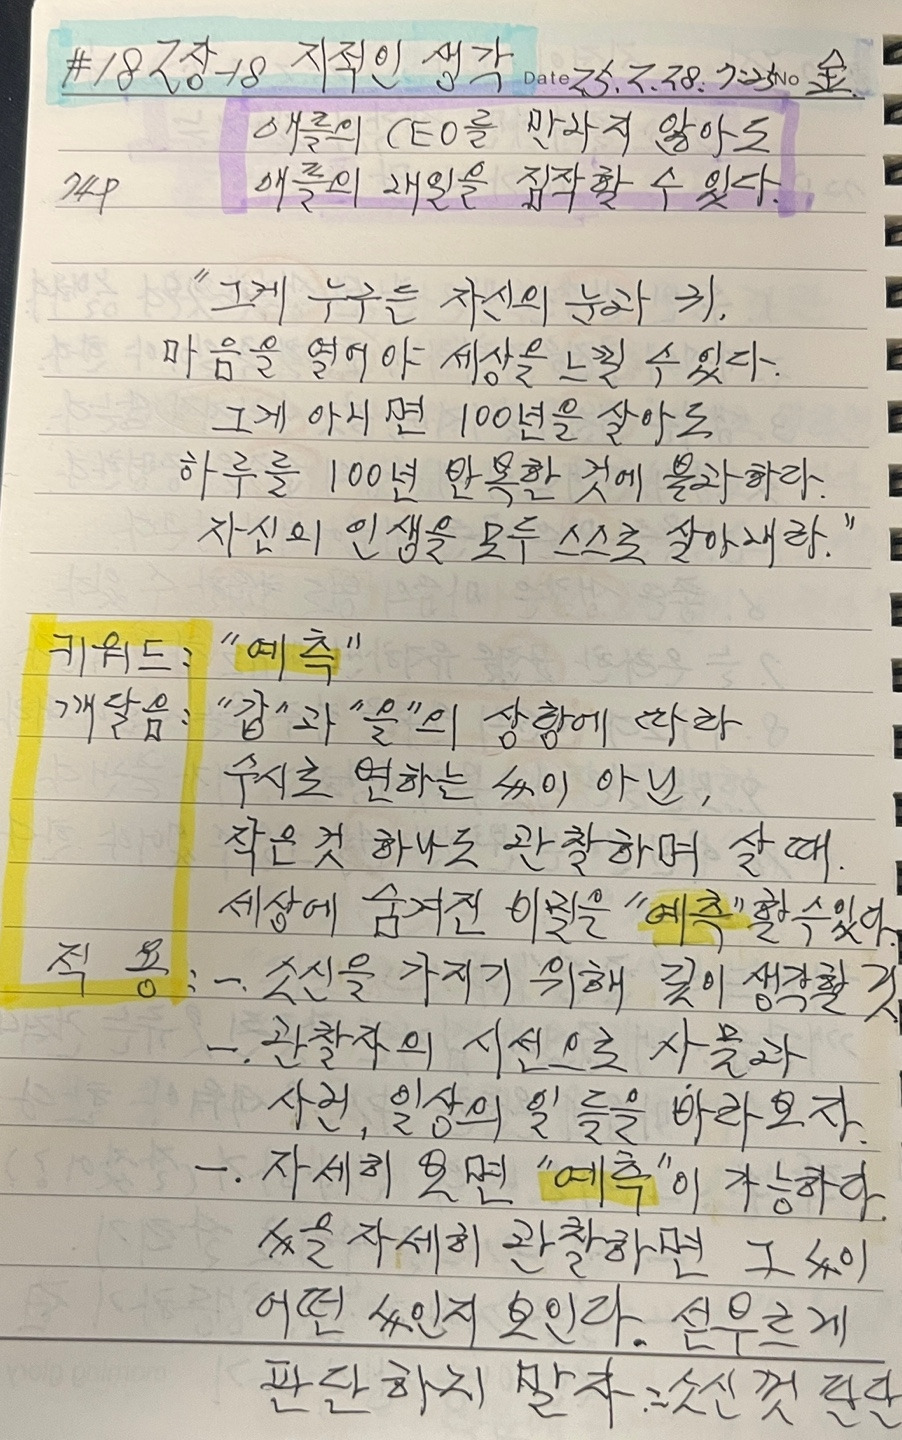 #18 2장-18 지적인 생각 Date 25.2.28.7:25 No 金.
애플의 CEO를 만나지 않아도
74P 애플의 내일을 짐작할 수 있다.
"그게 누구든 자신의 눈과 귀,
마음을 열어야 세상을 느낄 수 있다.
그게 아니면 100년을 살아도
하루를 100년 반복한 것에 불과하다.
자신의 인생을 모두 스스로 살아내라."
키워드: "예측"
깨달음: "갑"과 "을"의 상황에 따라
수시로 변하는 人이 아닌,
작은 것 하나도 관찰하며 살 때.
세상에 숨겨진 비밀을 "예측"할 수 있다.
적용: -. 소신을 가지기 위해 깊이 생각할 것
-. 관찰자의 시선으로 사물과
사건, 일상의 일들을 바라보자.
-. 자세히 보면 "예측"이 가능하다.
人을 자세히 관찰하면 그 人이
어떤 人인지 보인다. 섣부르게
판단하지 말자.=소신껏 판단
morning glory